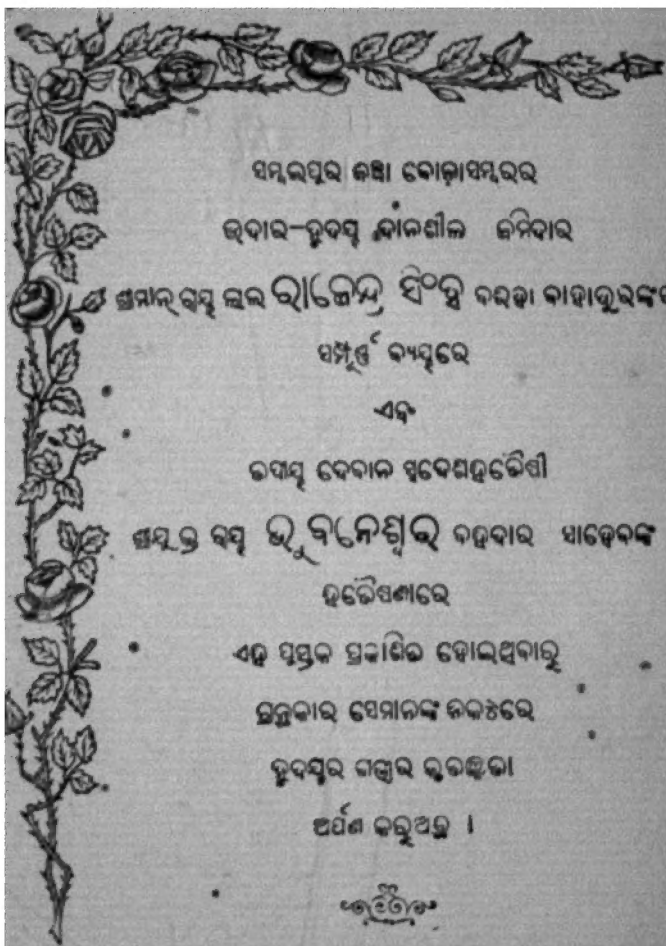 ସମ୍ବଲପୁର ଜିଲ୍ଲା ବୋଡ଼ାସମ୍ବରର
ଉଦାର-ହୃଦୟ ଦାନଶୀଳ ଜମିଦାର
ଶ୍ରୀମାନ୍ ରାୟ ଲାଲ ରାଜେନ୍ଦ୍ର ସିଂହ ବରିହା ବାହାଦୁରଙ୍କର
ସମ୍ପୂର୍ଣ୍ଣ ବ୍ୟୟରେ
ଏବଂ
ତଦୀୟ ଦେବାନ ସ୍ୱଦେଶହିତୈଷୀ
ଶ୍ରୀଯୁକ୍ତ ରାୟ ଭୁବନେଶ୍ୱର ବହିଦାର ସାହେବଙ୍କ
ହିତୈଷଣାରେ
ଏହି ପୁସ୍ତକ ପ୍ରକାଶିତ ହୋଇଥିବାରୁ
ଗ୍ରନ୍ଥକାର ସେମାନଙ୍କ ନିକଟରେ
ହୃଦୟର ଗଭୀର କୃତଜ୍ଞତା
ଅର୍ପଣ କରୁଅଛି ।